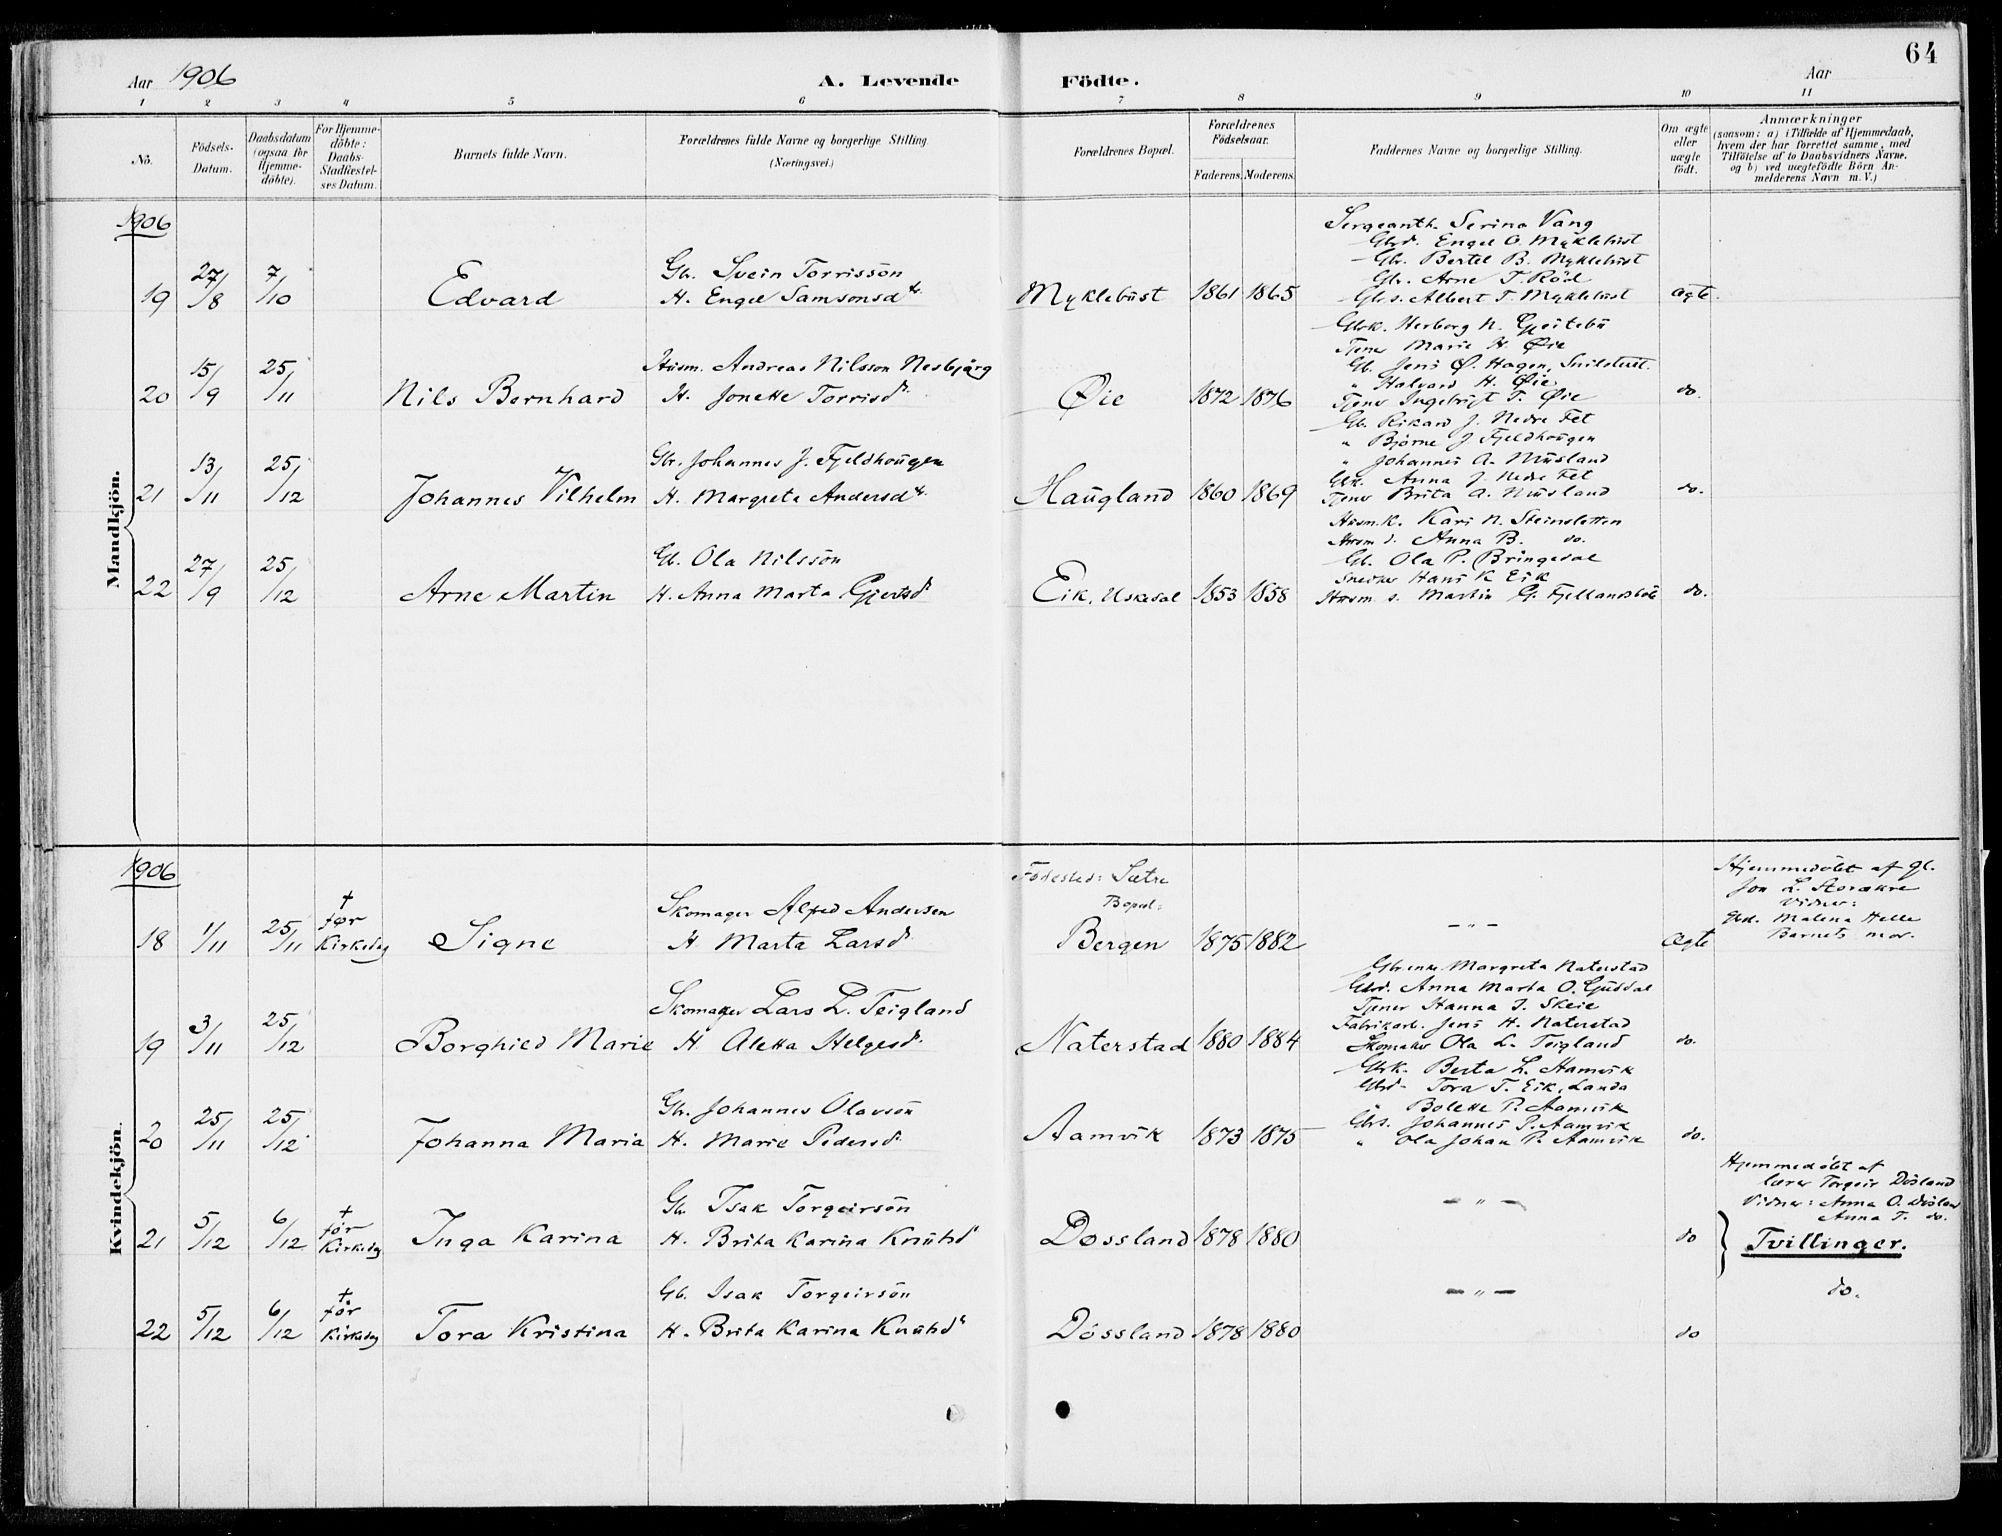 64
Aar 1906
A. Levende Födte.
Aar
1 2 3 4 5 6 7 8 9 10 11
No.
Födsels-Datum.
Daabsdatum (ogsaa for Hjemme-döbte).
For Hjemme-döbte: Daabs-Stadfæstel-ses Datum.
Barnets fulde Navn.
Forældrenes fulde Navne og borgerlige Stilling (Næringsvei.)
Forældrenes Bopæl.
Forældrenes Födselsaar.
Faderens. Moderens.
Faddernes Navne og borgerlige Stilling.
Om ægte eller uægte födt.
Anmærkninger
(saasom: a) i Tilfælde af Hjemmedaab, hvem der har forrettet samme, med Tilföielse af to Daabsvidners Navne, og b) ved uægtefödte Börn An-melderens Navn m. V.)
Mandkjön.
1906
19 27/8 7/10 Edvard
Gb. Svein Torrisson
H. Engel Samsonsdtr.
Myklebust 1861 1865
Sergeanth. Serina Vang
Gbd. Engel O. Myklebust
Gbr. Bertel B. Myklebust
Gbr. Arne T. Röd
Gbs. Albert T. Myklebust
ægte.
20 15/9 25/11 Nils Bernhard
Husm. Andreas Nilsson Nesbjørg
H. Jonette Torrisdr.
Øie 1872 1876
Gbrk. Herborg N. Gjeitebu
Tjener Marie H. Øie
Gb. Jens Ø. Hagen, Snilstveit.
" Halvard H. Øie
Tjener Ingebrigt T. Øie
do.
21 13/11 25/12 Johannes Vilhelm
Gbr. Johannes J. Fjeldhaugen
H. Margreta Andersdtr.
Haugland 1860 1869
Gb. Rikard J. Nedre Fet
" Bjørne J. Fjeldhougen
" Johannes A. Musland
Gbk. Anna J. Nedre Fet
Tjener Brita A. Musland
do.
22 27/9 25/12 Arne Martin
Gb. Ola Nilsson
H. Anna Marta Gjertsdr.
Eik, Uskedal 1853 1858
Husm.k. Kari N. Steinsletten
Husm d. Anna B. do.
Gb. Ola P. Bringedal
Snedker Hans K. Eik
Husm s. Martin G. Fjellandsbö
do.
Kvindekjön.
1906
18 1/11 25/11 † før Kirkedag Signe
Skomager Alfred Andersen
H Marta Larsdr.
Fødested: Sætre
Bopæl:
Bergen 1875 1882
— " —
Ægte
Hjemmedøbt af gb.
Jon L. Storækre
Vidner:
Gbd. Malena Helle
Barnets mor.
19 3/11 25/12 Borghild Marie
Skomager Lars L. Teigland
H. Aletta Helgesdr.
Naterstad 1880 1884
Gbrenke Margreta Naterstad
Gbrd. Anna Marta O. Guddal
Tjener Hanna J. Skeie
Fabrikarb. Jens H. Naterstad
Skomaker Ola L. Teigland
do.
20 25/11 25/12 Johanna Maria
Gbr. Johannes Olavson
H. Marie Pedersdr.
Aamvik 1873 1875
Gbrk. Berta L. Hamvik
Gbrd. Tora T. Eik, Landa
" Bolette P. Aamvik
Gbrs. Johannes P. Aamvik
" Ola Johan P. Aamvik
do.
21 5/12 6/12 † før Kirkedag Inga Karina
Gb. Isak Torgeirsön
H. Brita Karina Knutsdr
Dossland 1878 1880
— " —
do
Hjemmedøbt af
lærer Torgeir Døsland
Vidner: Anna O. Døsland
Anna T. do.
Tvillinger.
22 5/12 6/12 † før Kirkedag Tora Kristina
Gb. Isak Torgeirsön
H. Brita Karina Knutsdr
Døssland 1878 1880
— " —
do
do.